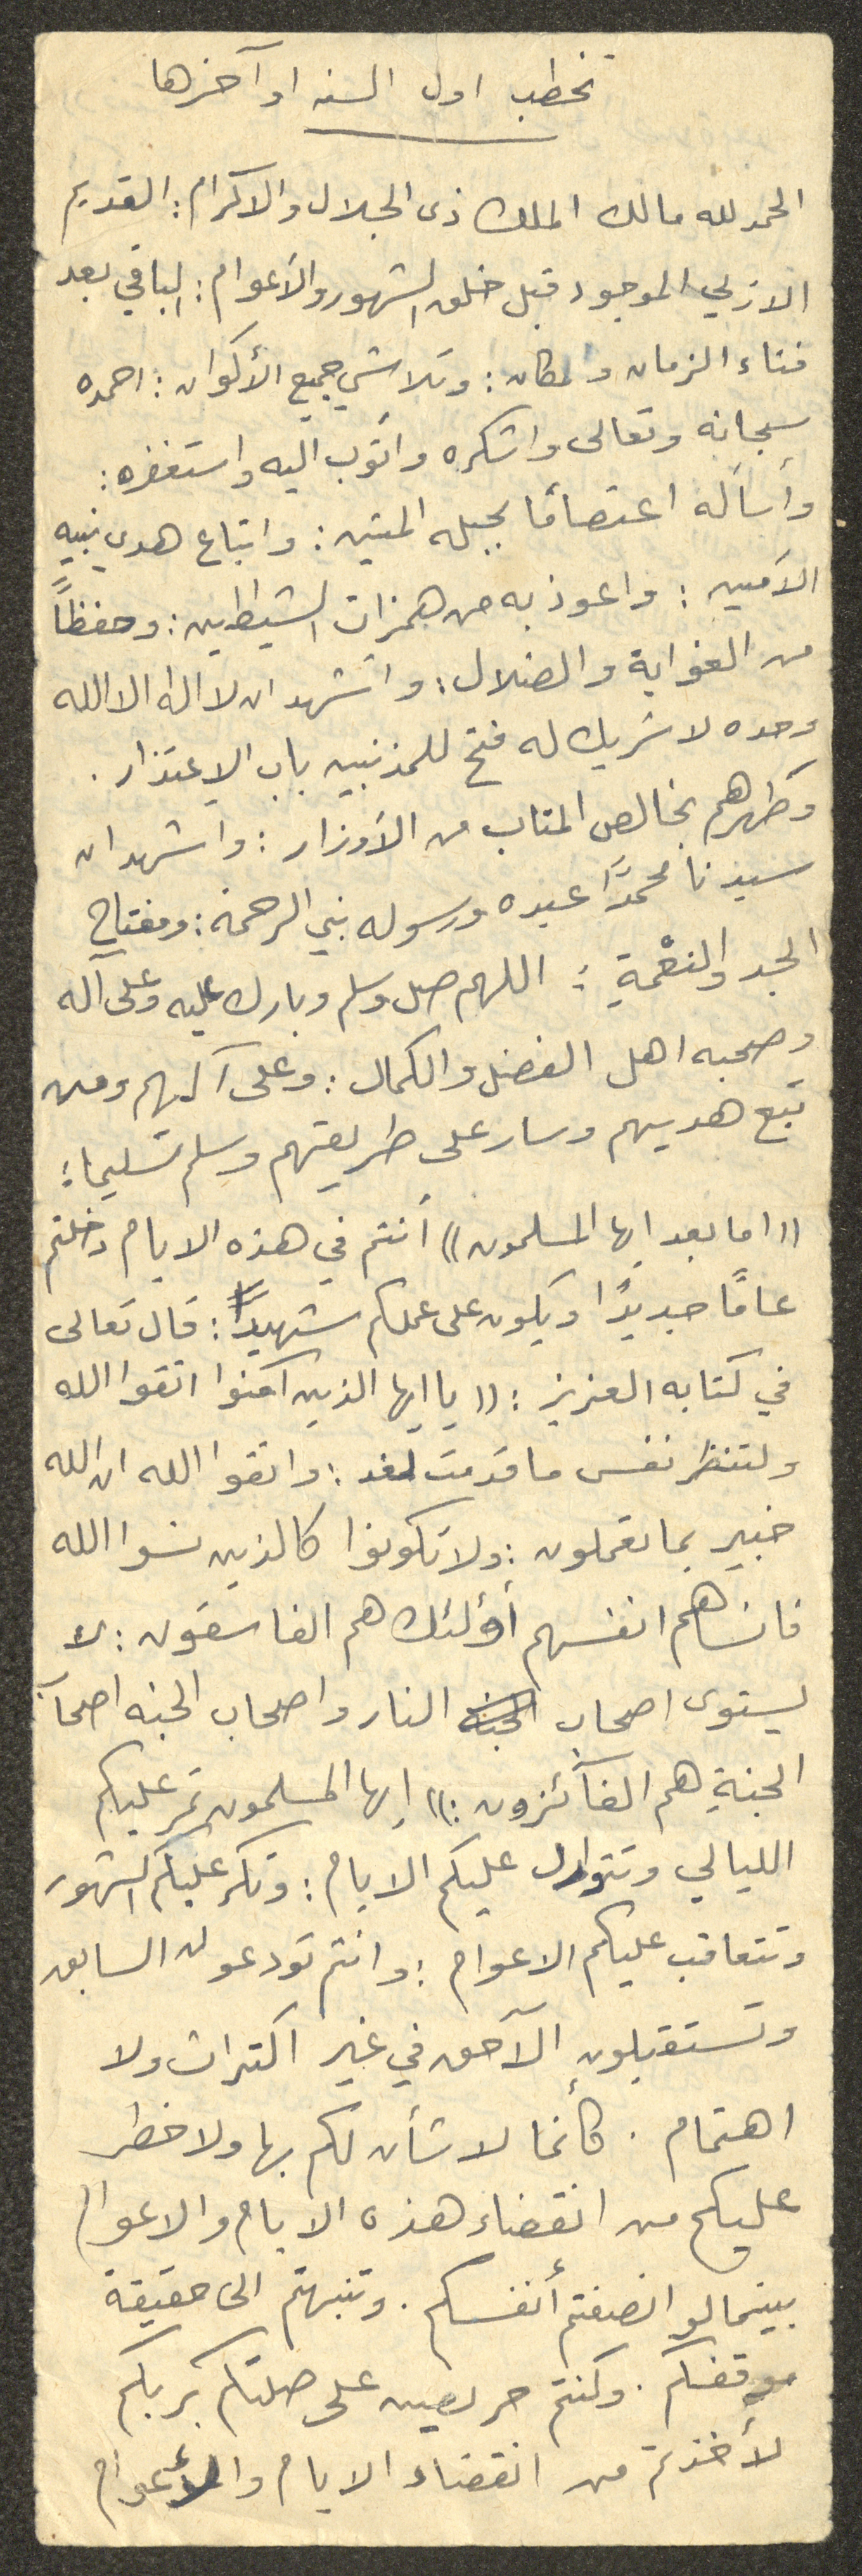 تخطب اول السنه او آخرها
الحمد لله مالك الملك ذى الجلال والاكرام : القديم
الازلي الموجود قبل خلق الشهور والأعوام : الباقي بعد
فناء الزمان والمكان : وتلاشي جميع الأكوان : احمده
سبحانه وتعالى واشكره واتوب اليه واستغفره :
وأسأله اعتصامًا بحبله المتين : واتباع هدي نبيه
الأمين : واعوذ به من همزات الشيطاطين : وحفظاً
من الغواية والضلال : واشهد ان لا اله الا الله
وحده لا شريك له فتح للمذنبين باب الاعتذار .
وطهرهم بخالص المتاب من الأوزار : واشهد ان
سيدنا محمدًا عبده ورسوله نبي الرحمة : ومفتاح
الجد والنعْمةِ : اللهم صل وسلم وبارك عليه وعلى آله
وصحبه اهل الفضل والكمال : وعلى آلهم ومن
تبع هديهم وسار على طريقتهم وسلم تسليما :
(( اما بعد ايها المسلمون )) أنتم في هذه الايام دخلتم
عامًا جديدًا ويكون على عملكم شهيدًا : قال تعالى
في كتابه العزيز : (( يا ايها الذين آمنوا اتقوا الله
ولتنظر نفس ما قدمت لغد : واتقوا الله ان الله
خبير بما تعملون : ولا تكونوا كالذين نسوا الله
فانساهم انفسهم أؤلئك هم الفاسقون : لا
يستوى اصحاب الجنة النار واصحاب الجنه اصحآب
الجنةِ هم الفآئزون : )) ايها المسلمون تمر عليكم
الليالي وتتوال عليكم الايام : وتكر عليكم الشهور
وتتعاقب عليكم الاعوام : وانتم تودعون السابق
وتستقبلون الآحق في غير اكتراث ولا
اهتمام . كأنما لا شأن لكم بها ولا خطر
عليكم من انقضاء هذه الايام والاعوام
بينما لو انصفتم أنفسكم . وتنبهتم الى حقيقة
موقفكم . وكنتم حريصين على صلتكم بربكم
لأخذتم من انقضاء الايام والأعوام